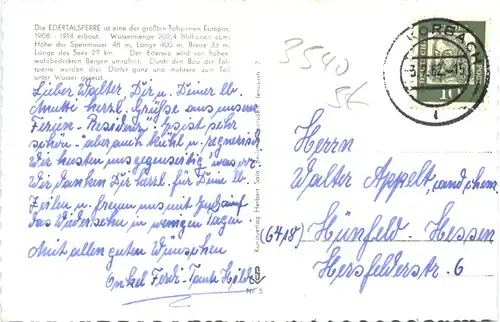 Die EDERTALSPERRE ist eine der größten Talsperren Europas.
1908 - 1914 erbaut. Wassermenge 202,4 Millionen cbm.
Höhe der Sperrmauer 48 m, Länge 400 m, Breite 33 m.
Länge des Sees 27 km. Der Edersee wird von hohen
waldbedeckten Bergen umrahmt. Durch den Bau der Tal-
sperre wurden drei Dörfer ganz und mehrere zum Teil
unter Wasser gesetzt.
3540
Lieber Walter, Dir u. Deiner lb.
Mutti herzl. Grüße aus unserer
Ferien-Residenz. Es ist sehr
schön - aber auch kühl u. regnerisch
Wir husten uns gegenseitig was vor
Wir danken Dir herzl. für Deine lb.
Zeilen u. freuen uns mit auf
das Wiedersehn in wenigen Tagen.
Mit allen guten Wünschen
Onkel Ferdi - Tante Hilde
Nr. 5
KORBACH
10
Herrn
Walter Appelt, cand. chem.
(6418) Hünfeld - Hessen
Hersfelderstr. 6